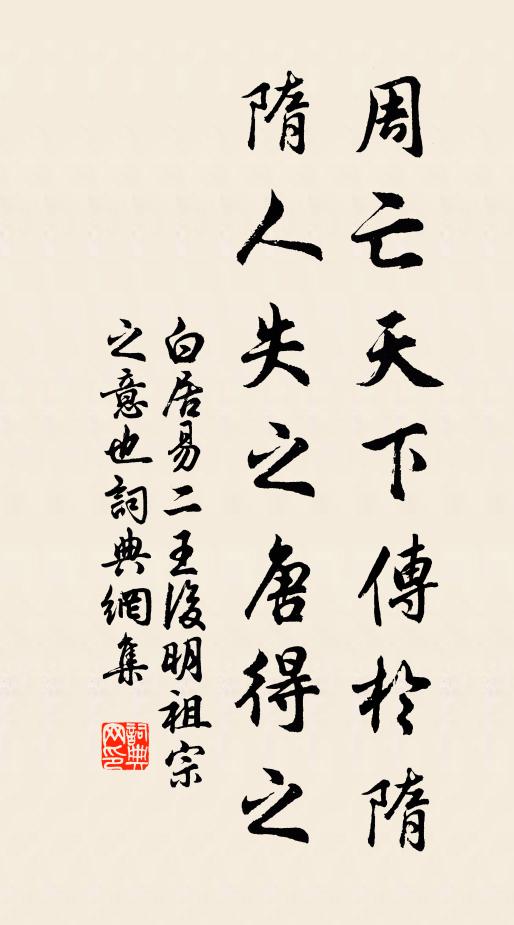 周亡天下傳於隋
隋人失之唐得之
白居易二王後明祖宗
之意也詞典網集
詞典
网印